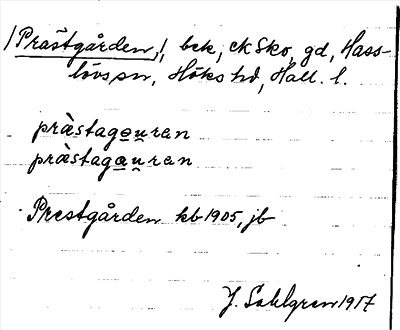 /Prästgården,/, bck, ck Sko, gd, Hass-
lövs sn, Höks hd, Hall. l.
pràstagou̯ran
pràstagau̯ran
Prestgården kb 1905, jb
J. Sahlgren 1917